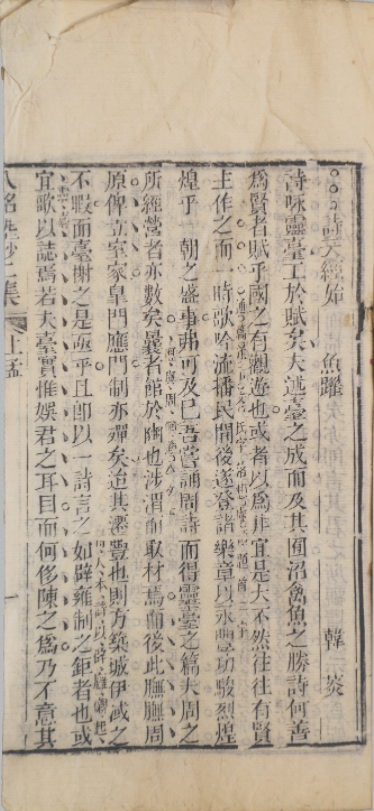 詩云經始 魚躍 韓菼
詩咏靈臺工於賦矣夫述臺之成而及其囿沼禽魚之勝詩何善
為賢者賦乎國之有觀遊也或者以為非宜是大不然往往有賢
主作之而一時歌吟流播民間後遂登諸樂章以永豐功駿烈煌
煌乎一朝之盛事弗可及已吾嘗誦周詩而得靈臺之篇夫周之
所經營者亦數矣曩者館於豳也涉渭而取材焉而後此膴膴周
原俾立室家皐門應門制亦殫矣迨其遷豐也則方築城伊淢之
不暇而臺榭之是亟乎且即以一詩言之如辟雍制之鉅者也或
宜歌以誌焉若夫臺實惟娛君之耳目而何侈陳之為乃不意其
八銘塾鈔二集 上孟 一